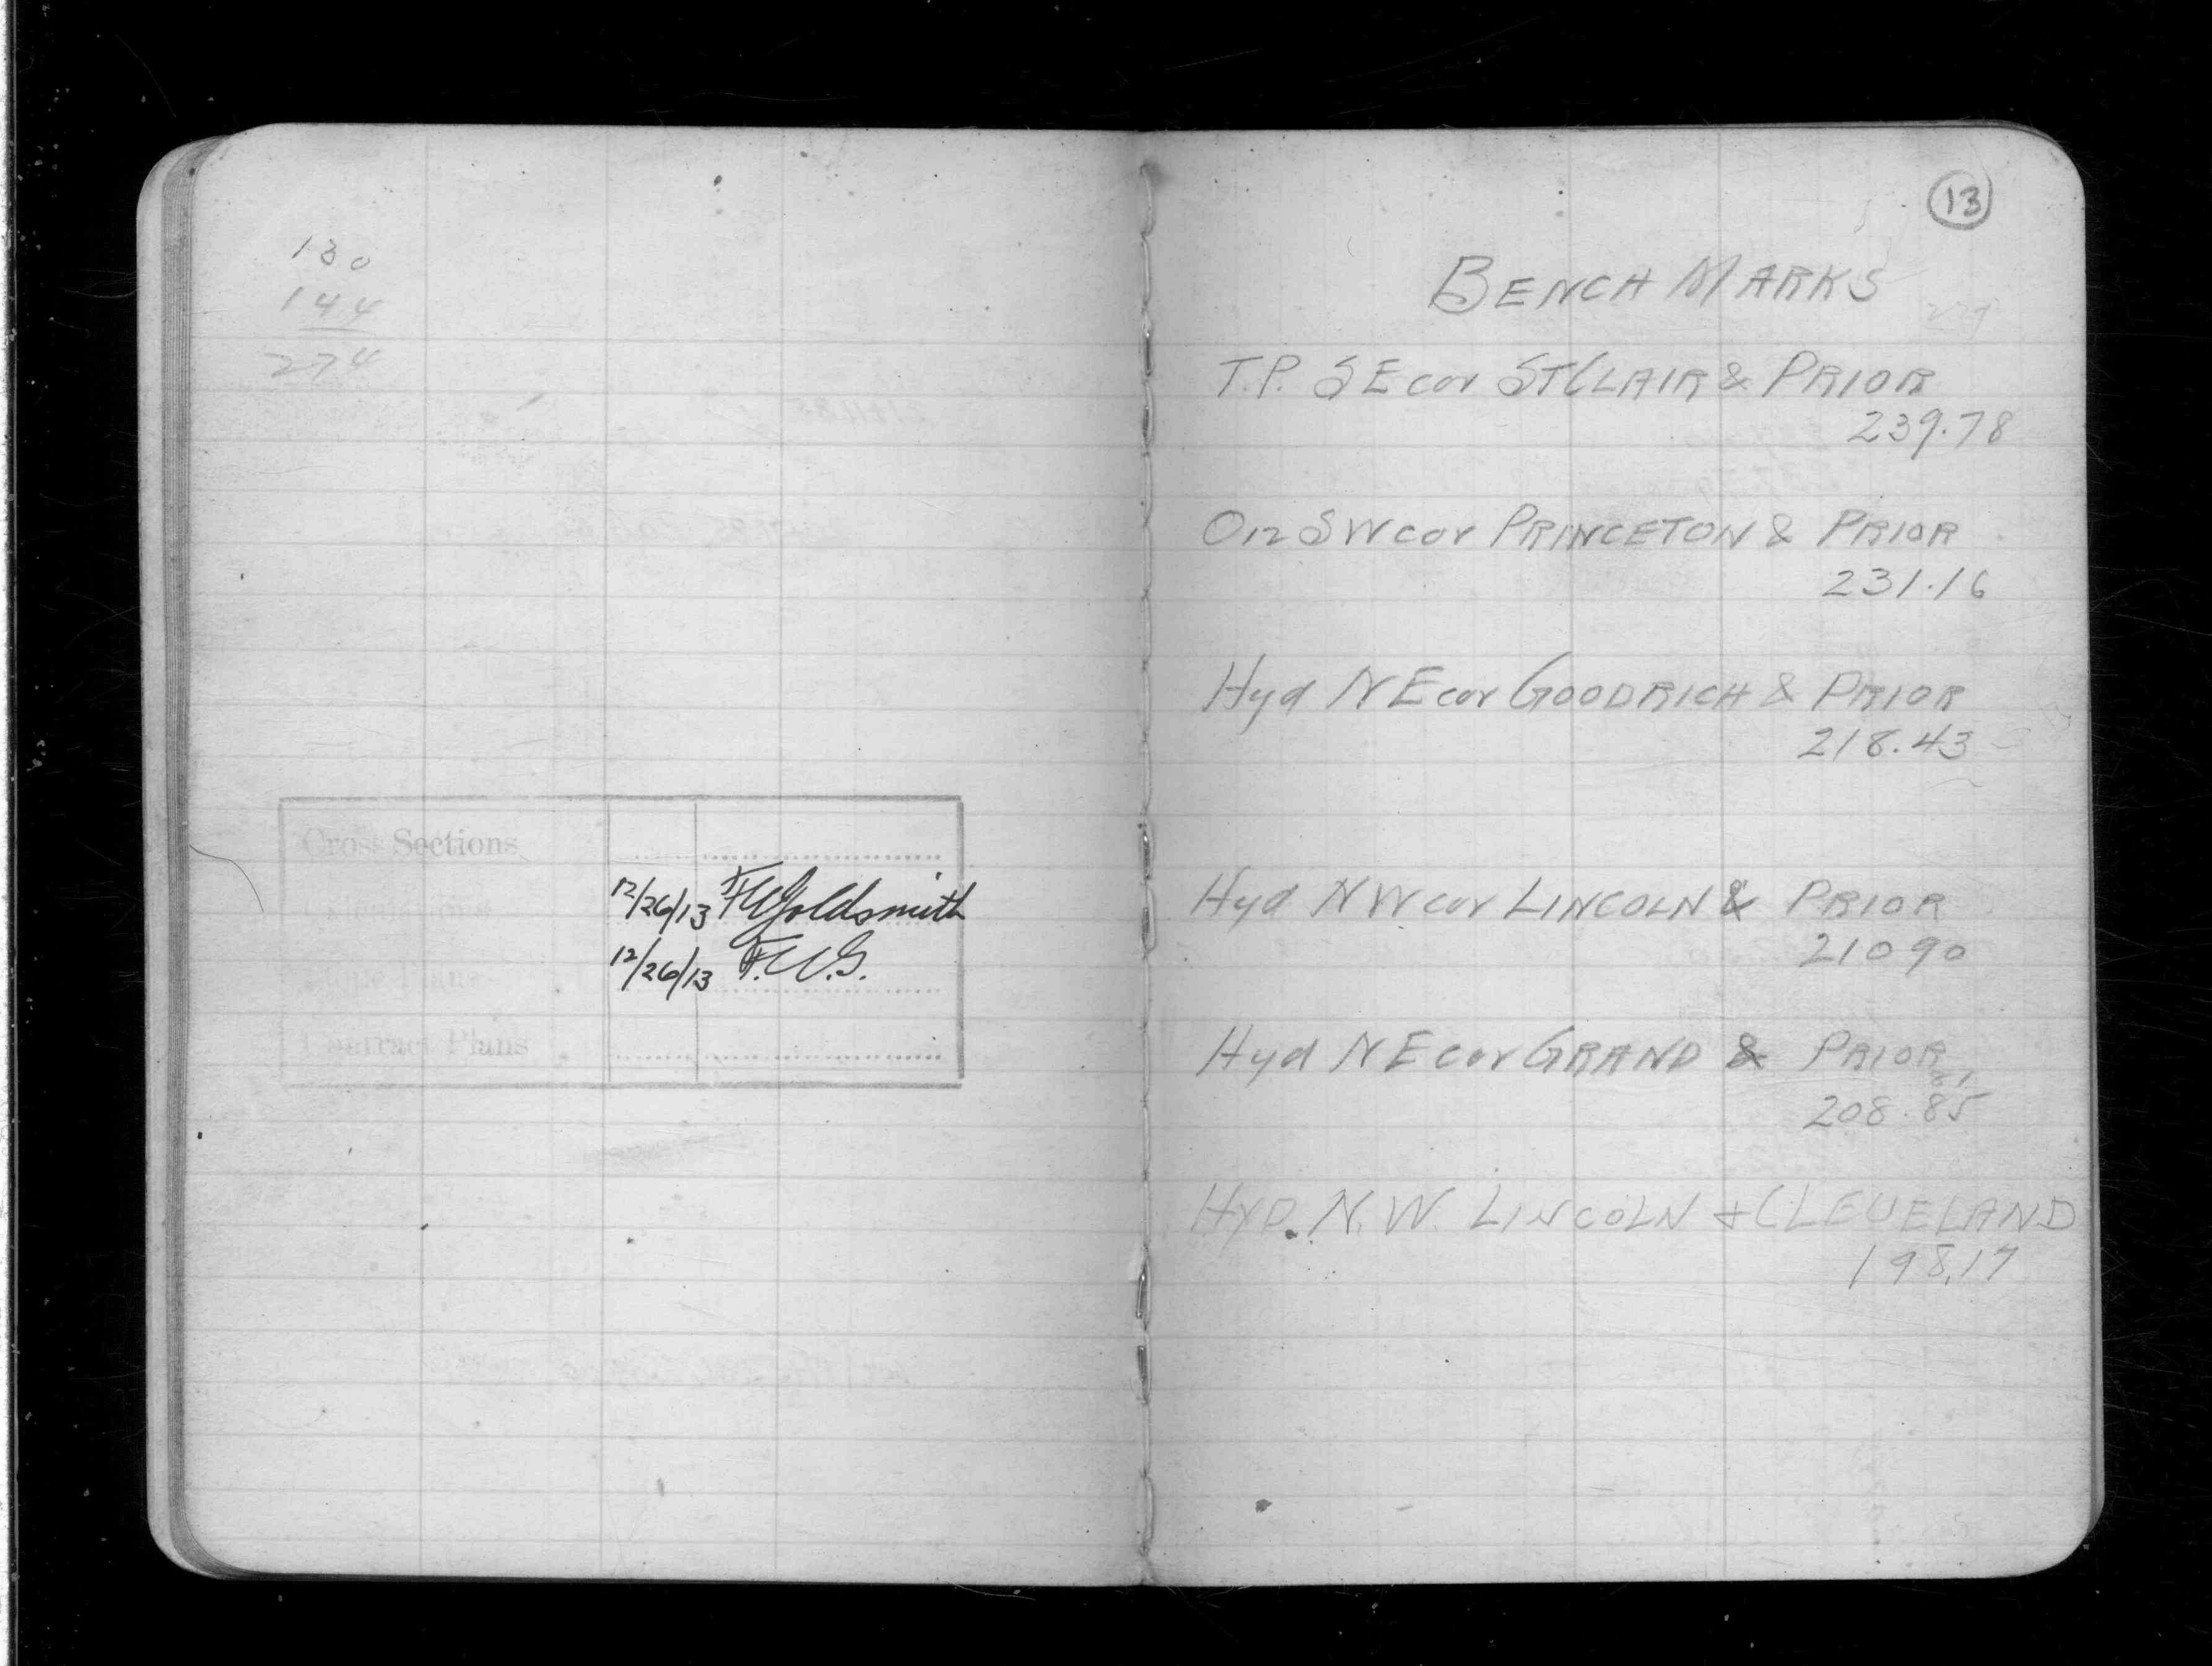 130
144
274
Cross Sections
12/26/13 F.W.Goldsmith
12/26/13 F.W.G.
Contract Plans
13
BENCH MARKS
T.P. S E cor ST CLAIR & PRIOR
239.78
On S W cor PRINCETON & PRIOR
231.16
Hyd N E cor GOODRICH & PRIOR
218.43
Hyd N W cor LINCOLN & PRIOR
210 90
Hyd N E cor GRAND & PRIOR
208.85
HYD. N.W. LINCOLN & CLEVELAND
198.17